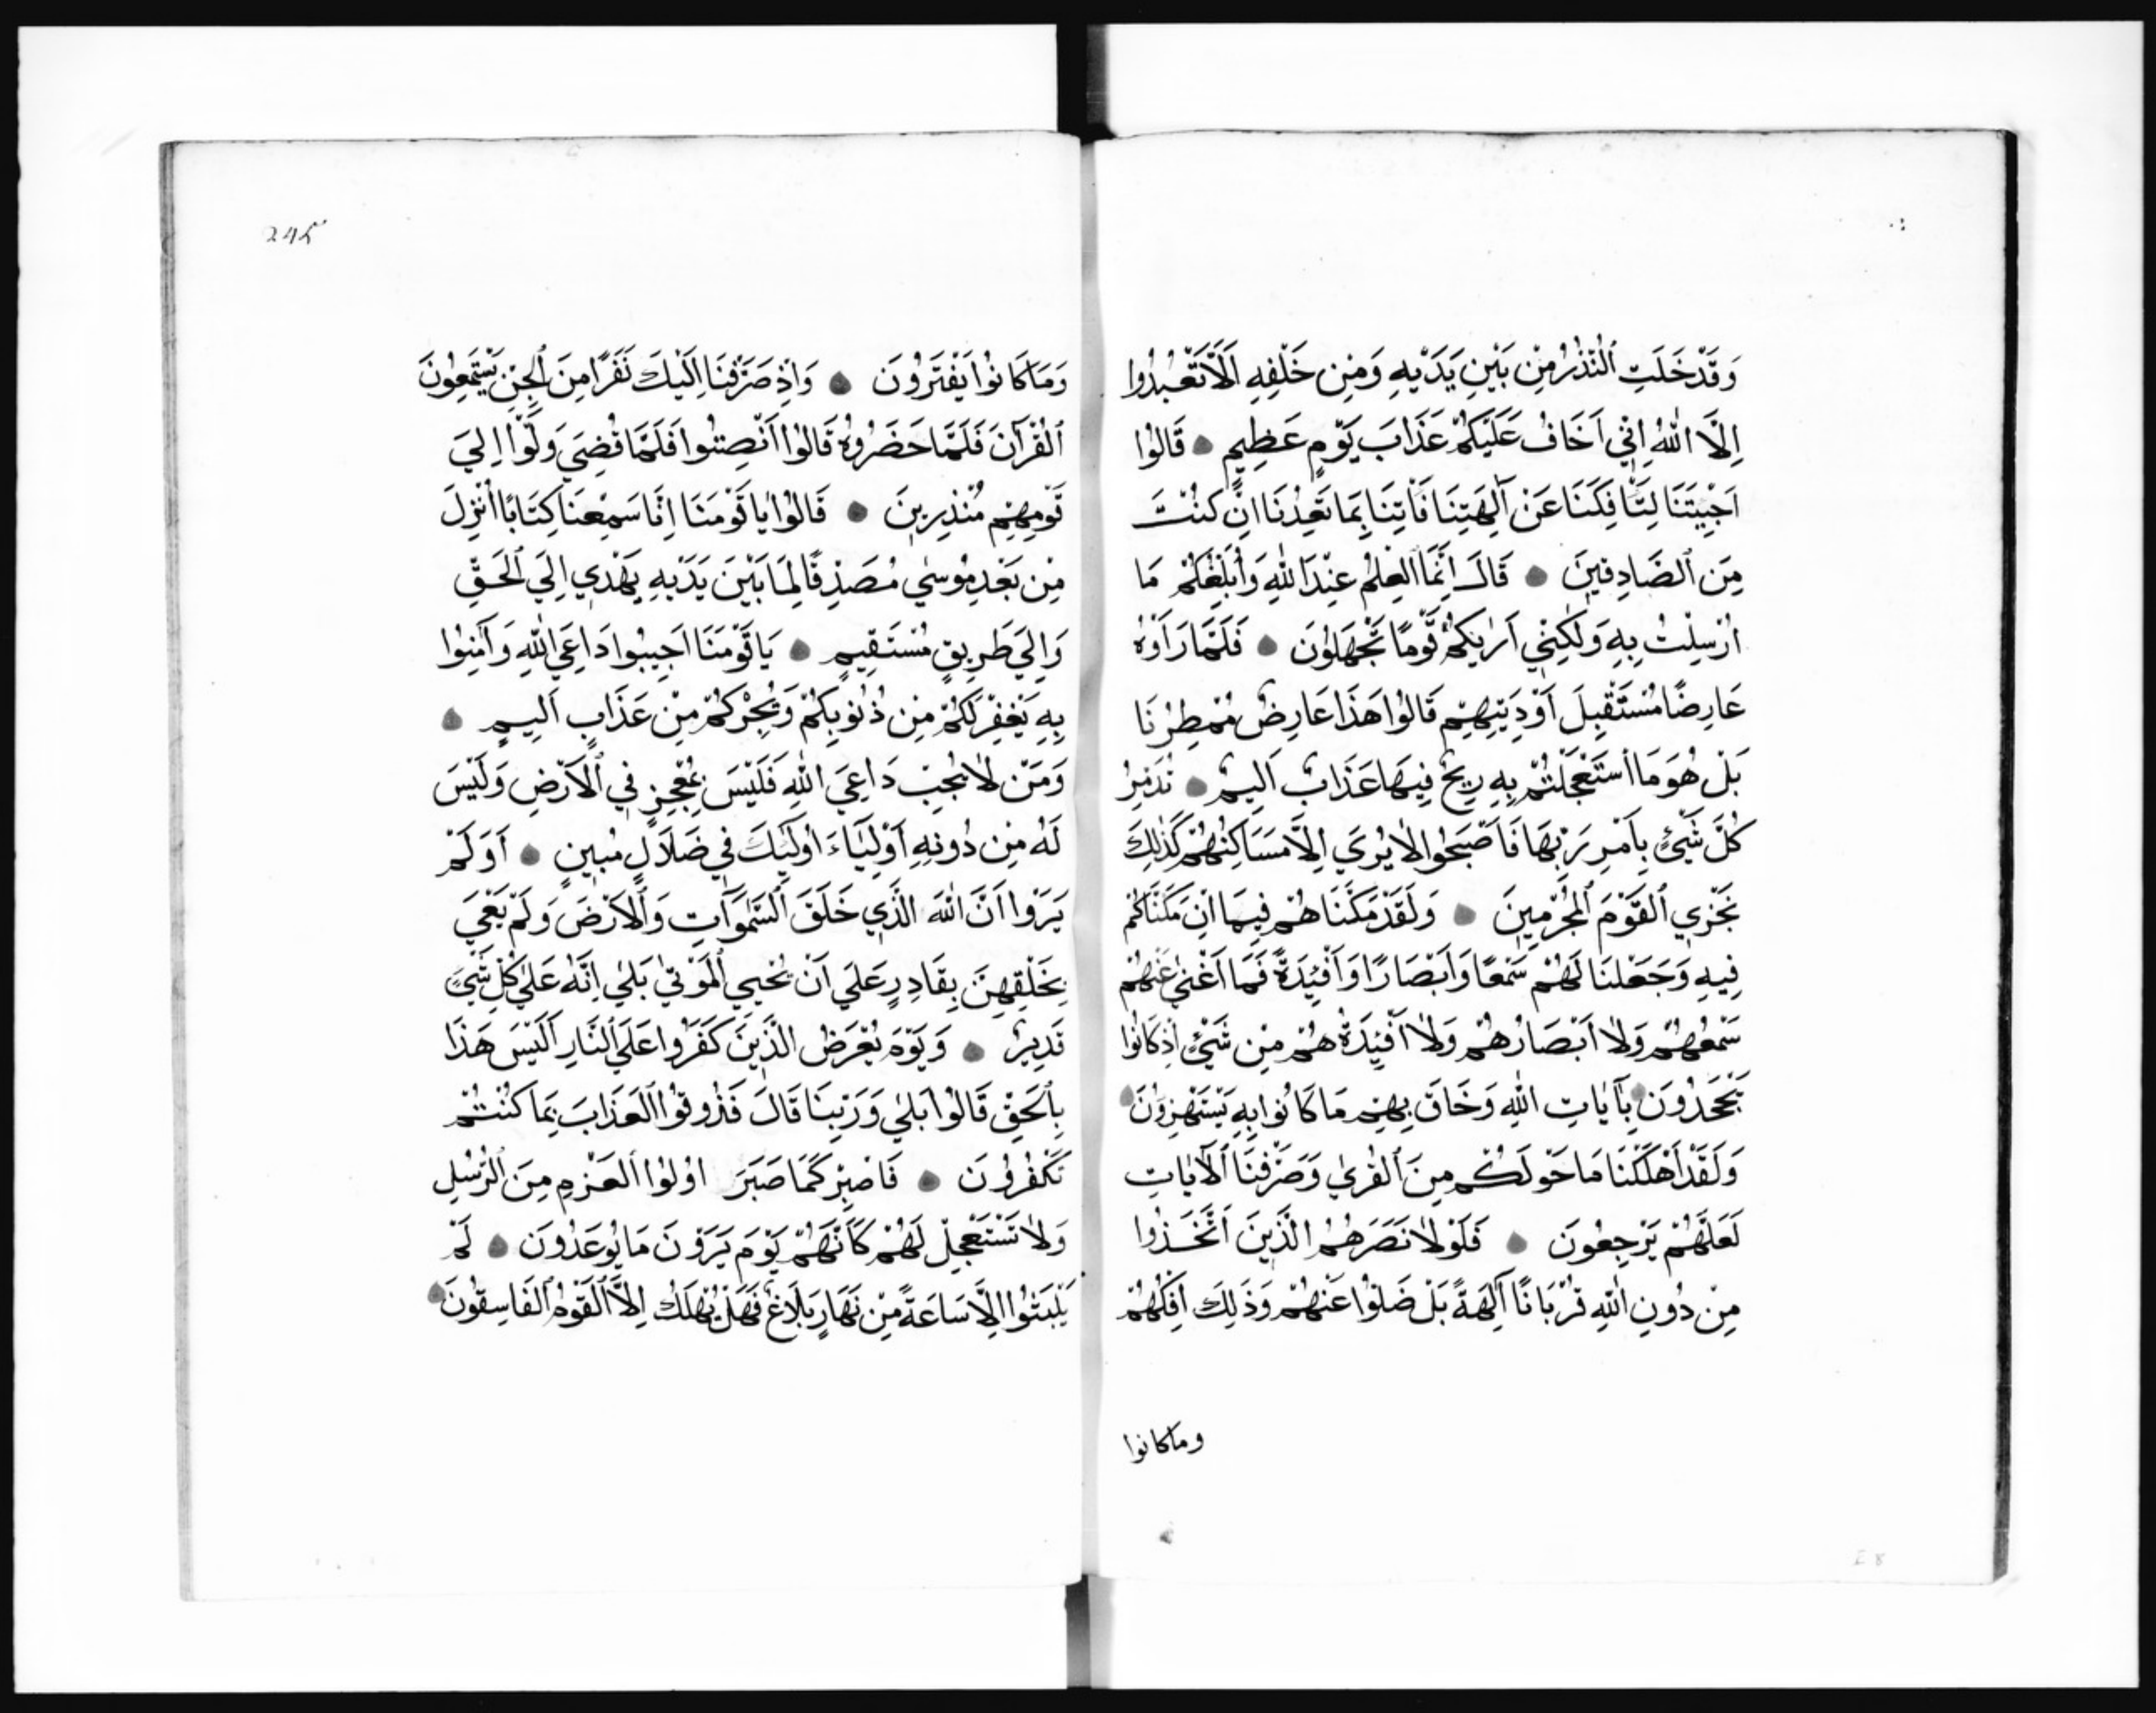 وَقَدْ خَلَتِ ٱلنُّذُرُ مِنْ بَيْنِ يَدَيْهِ وَمِنْ خَلْفِهِ اَلَّا تَعْبُدُوا
اِلَّا اللّٰهَ اِنِّي اَخَافُ عَلَيْكُمْ عَذَابَ يَوْمٍ عَظِيمٍ ۞ قَالُوا
اَجِئْتَنَا لِتَأْفِكَنَا عَنْ آلِهَتِنَا فَأْتِنَا بِمَا تَعِدُنَا اِنْ كُنْتَ
مِنَ ٱلصَّادِقِينَ ۞ قَالَ اِنَّمَا ٱلْعِلْمُ عِنْدَ اللّٰهِ وَأُبَلِّغُكُمْ مَا
اُرْسِلْتُ بِهِ وَلٰكِنِّي اَرٰيكُمْ قَوْمًا تَجْهَلُونَ ۞ فَلَمَّا رَاَوْهُ
عَارِضًا مُسْتَقْبِلَ اَوْدِيَتِهِمْ قَالُوا هَذَا عَارِضٌ مُمْطِرُنَا
بَلْ هُوَ مَا ٱسْتَعْجَلْتُمْ بِهِ رِيحٌ فِيهَا عَذَابٌ اَلِيمٌ ۞ تُدَمِّرُ
كُلَّ شَيْئٍ بِاَمْرِ رَبِّهَا فَاَصْبَحُوا لَا يُرَي اِلَّا مَسَاكِنُهُمْ كَذٰلِكَ
نَجْزِي ٱلْقَوْمَ ٱلْمُجْرِمِينَ ۞ وَلَقَدْ مَكَّنَّاهُمْ فِيمَا اِنْ مَكَّنَّاكُمْ
فِيهِ وَجَعَلْنَا لَهُمْ سَمْعًا وَاَبْصَارًا وَاَفْئِدَةً فَمَا اَغْنٰي عَنْهُمْ
سَمْعُهُمْ وَلَا اَبْصَارُهُمْ وَلَا اَفْئِدَتُهُمْ مِنْ شَيْئٍ اِذْ كَانُوا
يَجْحَدُونَ ۞ بِآيَاتِ اللّٰهِ وَحَاقَ بِهِمْ مَا كَانُوا بِهِ يَسْتَهْزِؤُنَ ۞
وَلَقَدْ اَهْلَكْنَا مَا حَوْلَكُمْ مِنَ ٱلْقُرٰي وَصَرَّفْنَا ٱلْآيَاتِ
لَعَلَّهُمْ يَرْجِعُونَ ۞ فَلَوْلَا نَصَرَهُمُ الَّذِينَ ٱتَّخَذُوا
مِنْ دُونِ اللّٰهِ قُرْبَانًا آلِهَةً بَلْ ضَلُّوا عَنْهُمْ وَذَلِكَ اِفْكُهُمْ
وما كانوا
245
وَمَا كَانُوا يَفْتَرُونَ ۞ وَاِذْ صَرَفْنَا اِلَيْكَ نَفَرًا مِنَ ٱلْجِنِّ يَسْتَمِعُونَ
ٱلْقُرْآنَ فَلَمَّا حَضَرُوهُ قَالُوا اَنْصِتُوا فَلَمَّا قُضِيَ وَلَّوْا اِلَيَ
قَوْمِهِمْ مُنْذِرِينَ ۞ قَالُوا يَا قَوْمَنَا اِنَّا سَمِعْنَا كِتَابًا اُنْزِلَ
مِنْ بَعْدِ مُوسٰي مُصَدِّقًا لِمَا بَيْنَ يَدَيْهِ يَهْدِي اِلَي ٱلْحَقِّ
وَاِلَي طَرِيقٍ مُسْتَقِيمٍ ۞ يَا قَوْمَنَا اَجِيبُوا دَاعِيَ اللّٰهِ وَآمِنُوا
بِهِ يَغْفِرْ لَكُمْ مِنْ ذُنُوبِكُمْ وَيُجِرْكُمْ مِنْ عَذَابٍ اَلِيمٍ ۞
وَمَنْ لَا يُجِبْ دَاعِيَ اللّٰهِ فَلَيْسَ بِمُعْجِزٍ فِي ٱلْاَرْضِ وَلَيْسَ
لَهُ مِنْ دُونِهِ اَوْلِيَاءَ اُولَئِكَ فِي ضَلَالٍ مُبِينٍ ۞ اَوَلَمْ
يَرَوْا اَنَّ اللّٰهَ الَّذِي خَلَقَ ٱلسَّمٰوَاتِ وَٱلْاَرْضَ وَلَمْ يَعْيَ
بِخَلْقِهِنَّ بِقَادِرٍ عَلَي اَنْ يُحْيِيَ ٱلْمَوْتٰي بَلٰي اِنَّهُ عَلٰي كُلِّ شَيْئٍ
قَدِيرٌ ۞ وَيَوْمَ يُعْرَضُ الَّذِينَ كَفَرُوا عَلَي ٱلنَّارِ اَلَيْسَ هَذَا
بِٱلْحَقِّ قَالُوا بَلٰي وَرَبِّنَا قَالَ فَذُوقُوا ٱلْعَذَابَ بِمَا كُنْتُمْ
تَكْفُرُونَ ۞ فَاصْبِرْ كَمَا صَبَرَ اُولُوا ٱلْعَزْمِ مِنَ ٱلرُّسُلِ
وَلَا تَسْتَعْجِلْ لَهُمْ كَاَنَّهُمْ يَوْمَ يَرَوْنَ مَا يُوعَدُونَ ۞ لَمْ
يَلْبَثُوا اِلَّا سَاعَةً مِنْ نَهَارٍ بَلَاغٌ فَهَلْ يُهْلَكُ اِلَّا ٱلْقَوْمُ ٱلْفَاسِقُونَ ۞